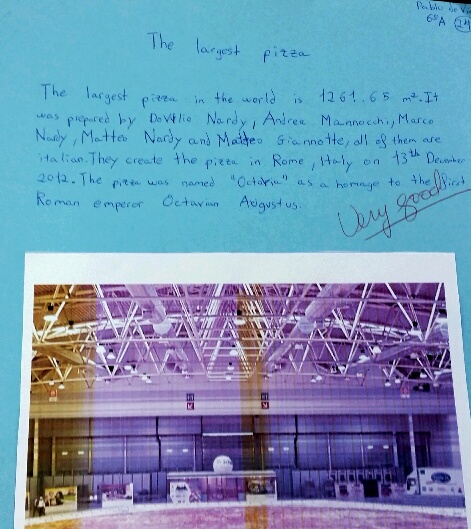 Pablo de
6ºA 24
The largest pizza
The largest pizza in the world is 1261.65 m². It
was prepared by Dovilio Nardy, Andrea Mannocchi, Marco
Nardy, Matteo Nardy and Matteo Giannotte, all of them are
italian. They create the pizza in Rome, Italy on 13th December
2012. The pizza was named "Octavia" as a homage to the first
Roman emperor Octavian Augustus.
Very good!